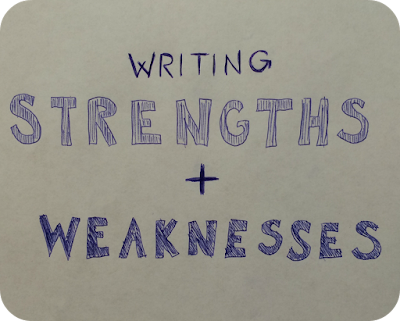 WRITING
STRENGTHS
+
WEAKNESSES